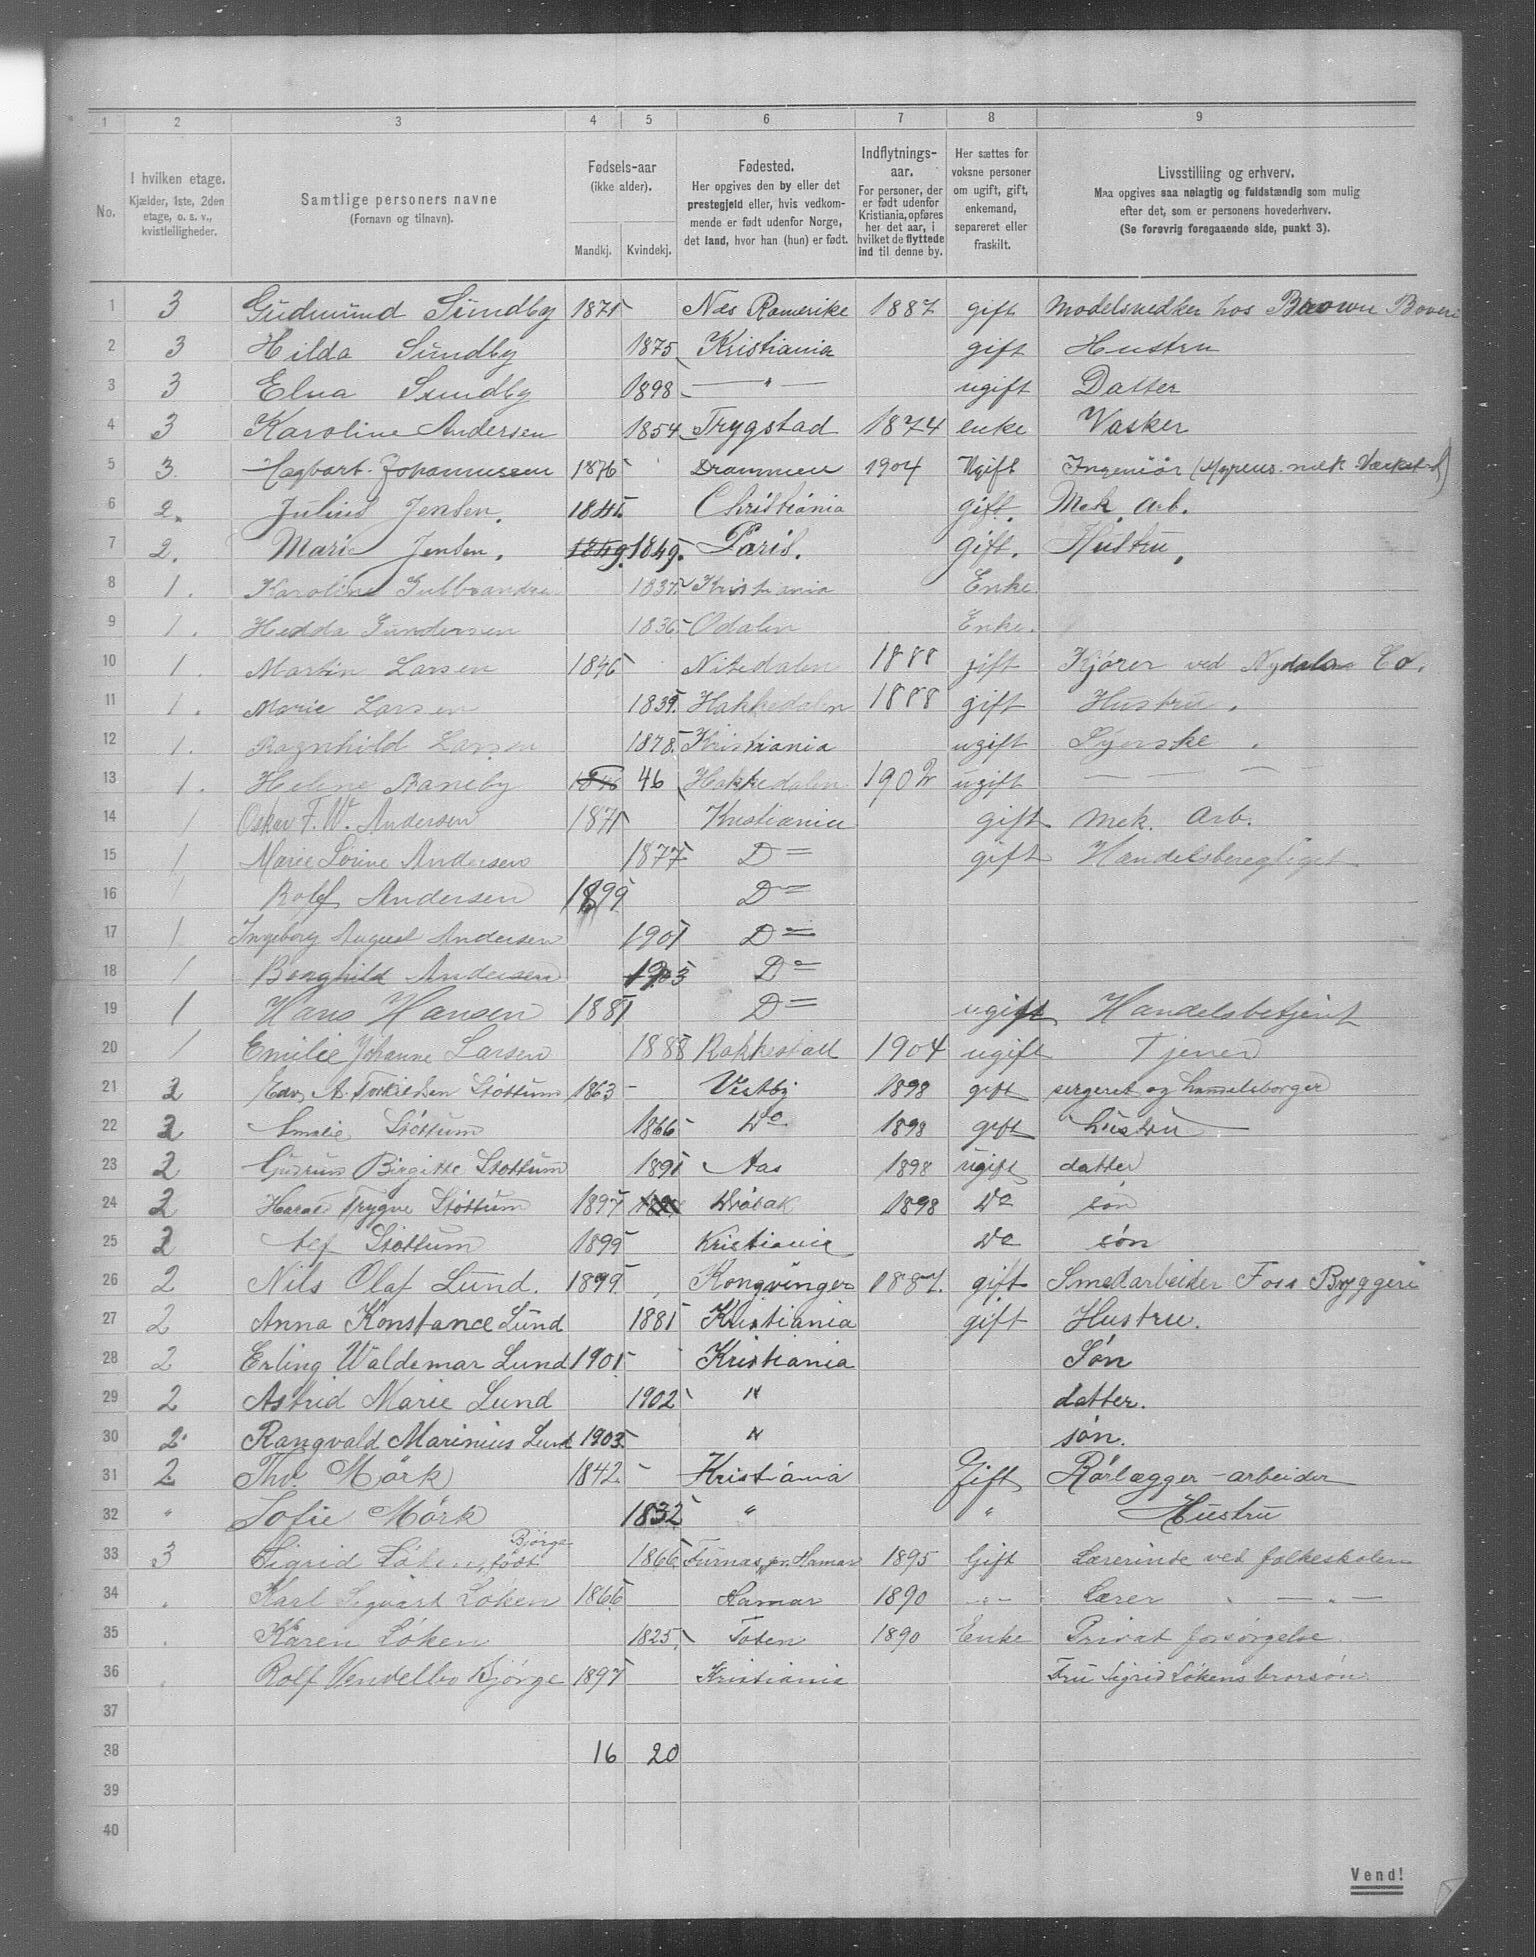 1 2 3 4 5 6 7 8 9
No.
I hvilken etage.
Kjælder, 1ste, 2den
etage, o. s. v.,
kvistleiligheder.
Samtlige personers navne
(Fornavn og tilnavn).
Fødsels-aar
(ikke alder).
Mandkj. Kvindekj.
Fødested.
Her opgives den by eller det
prestegjeld eller, hvis vedkom-
mende er født udenfor Norge,
det land, hvor han (hun) er født.
Indflytnings-
aar.
For personer, der
er født udenfor
Kristiania, opføres
her det aar, i
hvilket de flyttede
ind til denne by.
Her sættes for
voksne personer
om ugift, gift,
enkemand,
separeret eller
fraskilt.
Livsstilling og erhverv.
Maa opgives saa nøiagtig og fuldstændig som mulig
efter det, som er personens hovederhverv.
(Se forøvrig foregaaende side, punkt 3).
1 3 Gudmund Sundby 1871 Næs Romerike 1887 gift Modelsnedker hos Brown Boveri
2 3 Hilda Sundby 1875 Kristiania gift Hustru
3 3 Elna Sundby 1898 — " — ugift Datter
4 3 Karoline Andersen 1854 Trygstad 1874 enke Vasker
5 3 Hagbart Johannessen 1876 Drammen 1904 Ugift Ingeniör (Myrens mek Værksted)
6 2. Julius Jensen. 1841. Christiania gift. Mek. Arb.
7 2. Marie Jensen. 1849. 1849. Paris. Gift. Hustru.
8 1. Karoline Gulbrandsen 1837 Kristiania Enke
9 1. Hedda Gundersen 1836 Odalen Enke.
10 1. Martin Larsen 1846 Nitedalen 1888 gift Kjører ved Nydalens Co.
11 1. Marie Larsen 1839. Hakkedalen 1888 gift Hustru.
12 1. Ragnhild Larsen 1878. Kristiania ugift Syerske.
13 1. Helene Raneby 1846 46 Hakkedalen 1902 ugift — —
14 1 Oskar F. W. Andersen 1871 Kristiania gift Mek. Arb.
15 1 Marie Lovine Andersen 1877 D= gift Handelsberegtiget
16 1 Rolf Andersen 1899 D=
17 1 Ingeborg August Andersen 1901 D=
18 1 Borghild Andersen 1903 D=
19 1 Hans Hansen 1881 D= ugift Handelsbetjent
20 1 Emilie Johanne Larsen 1888 Rakkestad 1904 ugift Tjener
21 2 Edv. A. Torkildsen Støttum 1863 Vestby 1898 gift sergeret og handelsborger
22 2 Amalie Støttum 1866 Do 1898 gift hustru
23 2 Gudrun Birgitte Støttum 1891 Aas 1898 ugift datter
24 2 Harald Trygve Støttum 1897 Drøbak 1898 Do søn
25 2 Alf Støttum 1899 Kristiania Do søn
26 2 Nils Olaf Lund. 1879. Kongvinger 1887. gift Smedarbeider Foss Bryggeri
27 2 Anna Konstance Lund 1881 Kristiania gift Hustru.
28 2 Erling Waldemar Lund 1901 Kristiania Søn
29 2 Astrid Marie Lund 1902 " datter.
30 2. Rangvald Marinius Lund 1903. " søn.
31 2 Thv. Mörk 1842. Kristiania Gift Rørlægger-arbeider
32 " Sofie Mörk 1832 " " Hustru
33 3 Sigrid Løken, født Bjørge 1866 Furnæs, pr. Hamar 1895 Gift Lærerinde ved folkeskolen
34 " Karl Sigvart Løken 1866 Hamar 1890 — " — Lærer " — " —
35 " Karen Løken 1825 Toten 1890 Enke Privat forsørgelse
36 " Rolf Vendelbo Bjørge 1897 Kristiania Fru Sigrid Løkens brorsøn.
37
38 16 20
39
40
Vend!